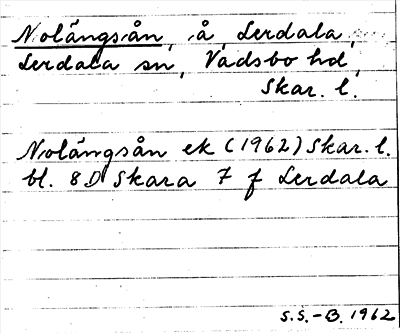 Nolängsån, å, Lerdala,
Lerdala sn, Vadsbo hd,
Skar. l.
Nolängsån ek (1962) Skar. l.
bl. 8D Skara 7 f Lerdala
S.S.-B. 1962